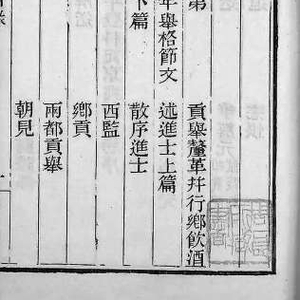 第
貢舉釐革幷行鄉飲酒
年舉格節文
述進士上篇
下篇
散序進士
西監
鄉貢
兩都貢舉
朝見